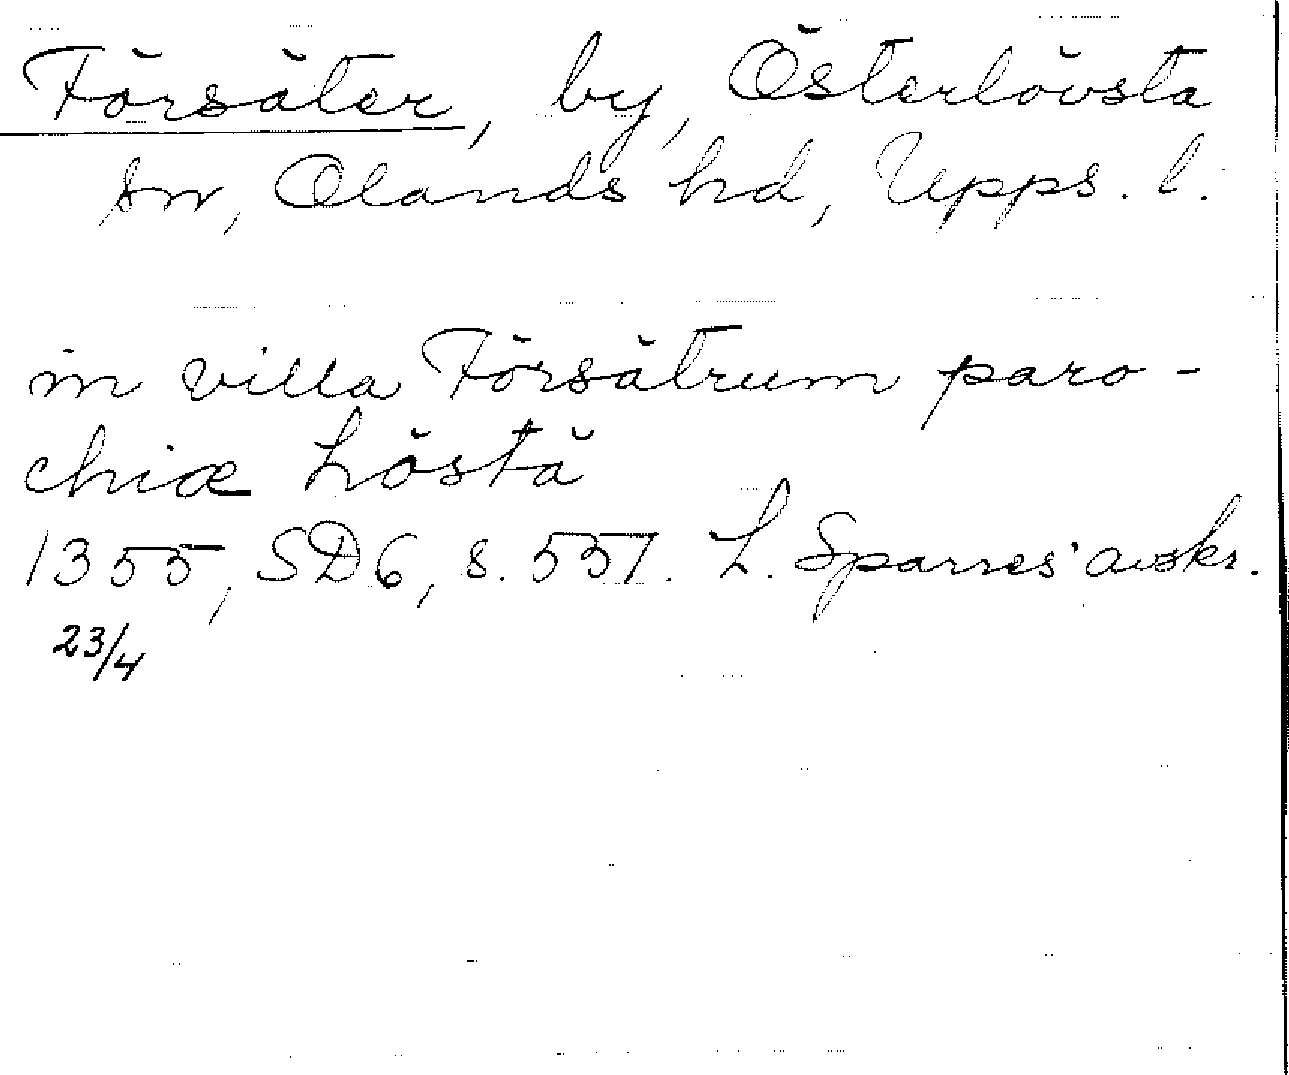 Försäter, by, Österlövsta
sn, Olands hd, Upps. l.
in villa Försätrum paro-
chiæ Löstä
1355, SD6, s. 551. L. Sparres avskr.
23/4